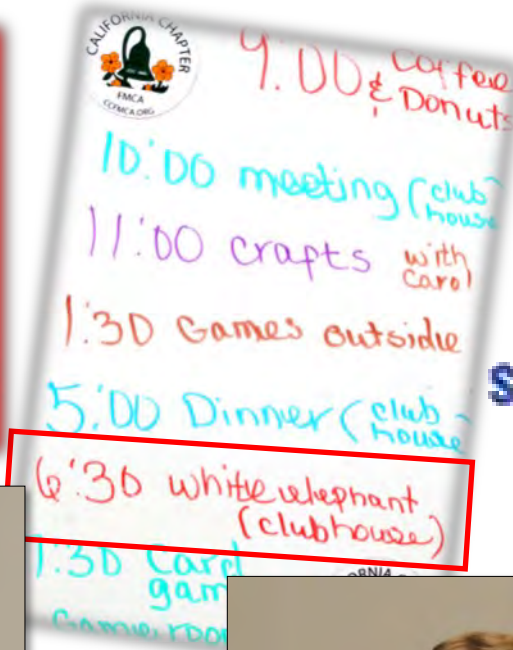 CALIFORNIA CHAPTER
FMCA
CCFMCA.ORG
9:00 Coffee
& Donuts
10:00 meeting (club
house
11:00 crafts with
Carol
1:30 Games outside
5:00 Dinner (club-
house
6:30 white elephant
(clubhouse)
:30 Card
gam
Game roo
S